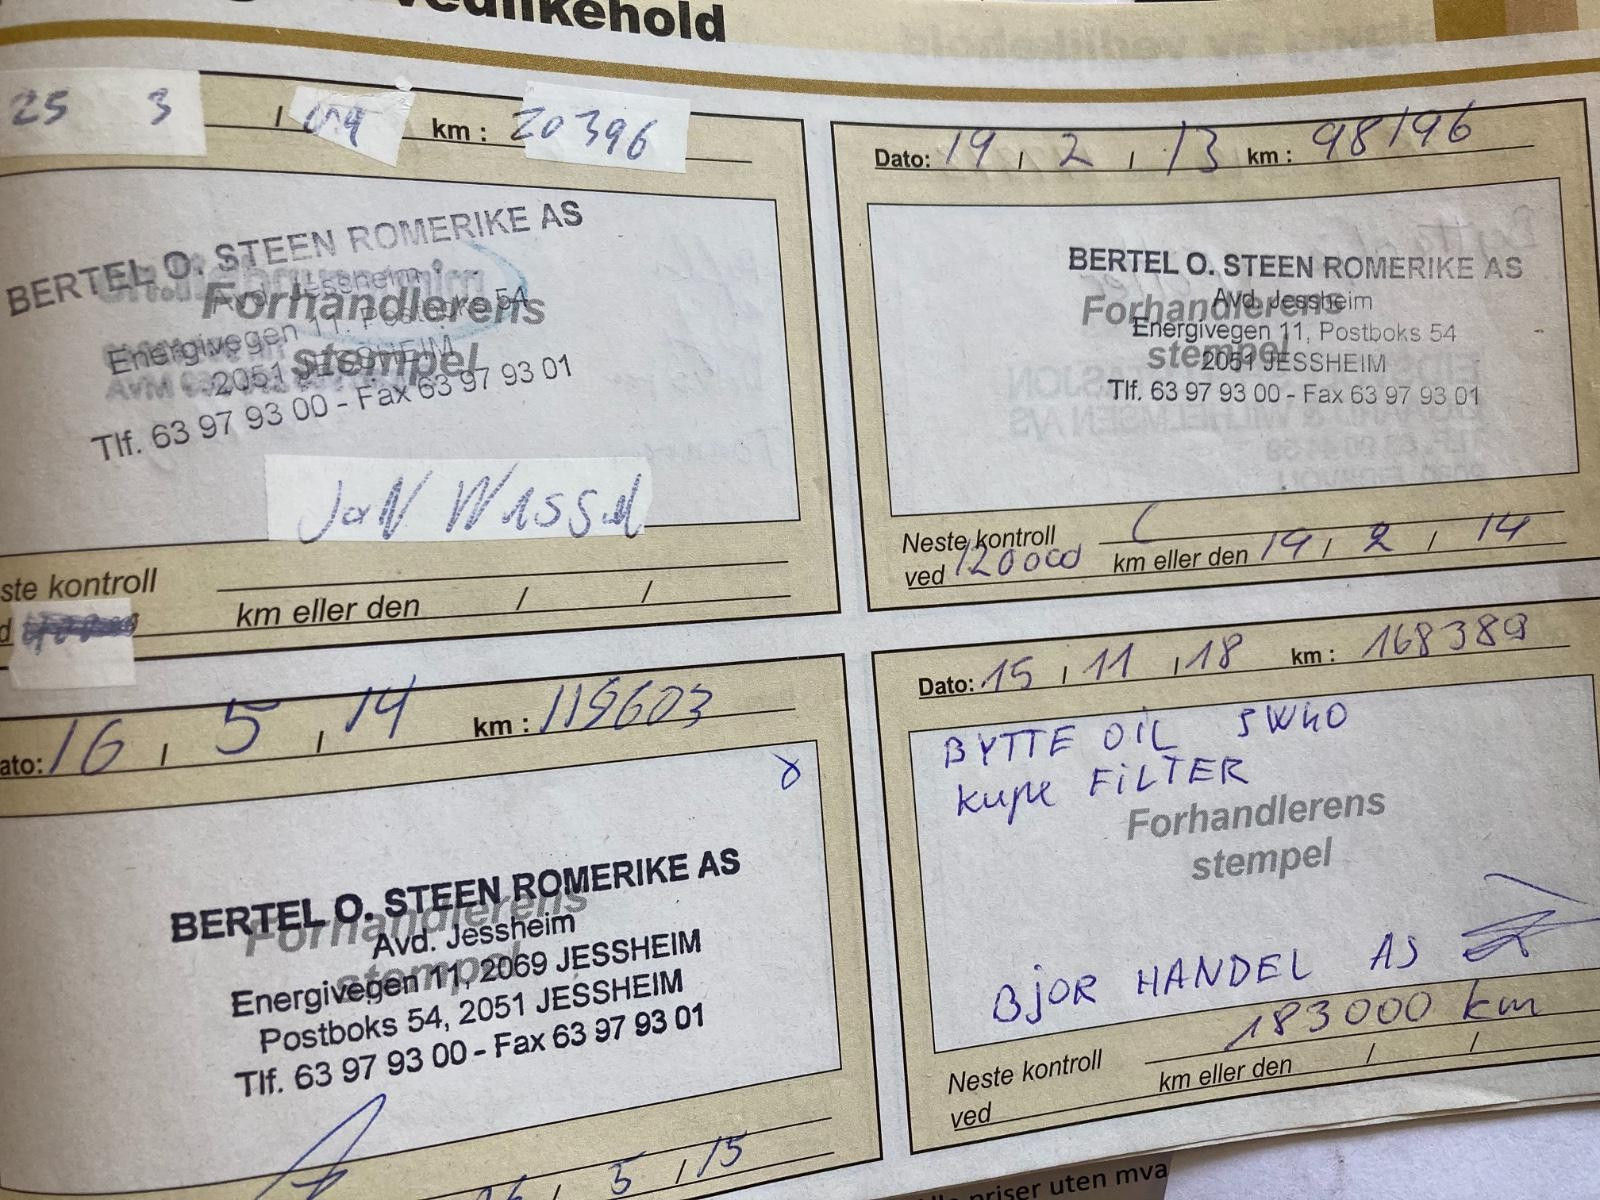 vedlikehold
25 3 / 09 km : 20396
BERTEL O. STEEN ROMERIKE AS
Avd. Jessheim
Forhandlerens
Energivegen 11. Postboks 54
stempel
2051 JESSHEIM
Tlf. 63 97 93 00 - Fax 63 97 93 01
Jan
ste kontroll
km eller den / /
Dato: 19 / 2 / 13 km : 98196
BERTEL O. STEEN ROMERIKE AS
Avd. Jessheim
Forhandlerens
Energivegen 11, Postboks 54
stempel
2051 JESSHEIM
Tlf. 63 97 93 00 - Fax 63 97 93 01
Neste kontroll
ved 120000 km eller den 19 / 2 / 14
ato: 16 / 5 / 14 km : 119603
BERTEL O. STEEN ROMERIKE AS
Forhandlerens
Avd. Jessheim
stempel
Energivegen 11, 2069 JESSHEIM
Postboks 54, 2051 JESSHEIM
Tlf. 63 97 93 00 - Fax 63 97 93 01
5 / 15
Dato: 15 / 11 / 18 km : 168389
BYTTE OIL 5W40
kupe FILTER
Forhandlerens
stempel
BJOR HANDEL AS
183000 km
Neste kontroll
ved km eller den / /
priser uten mva